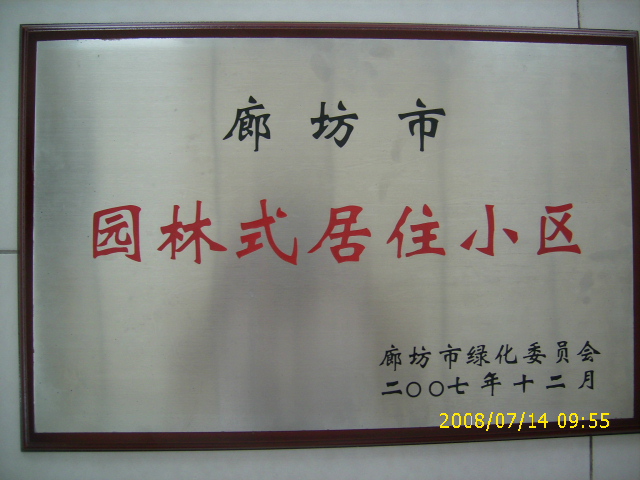 廊坊市
园林式居住小区
廊坊市绿化委员会
二〇〇七年十二月
2008/07/14 09:55